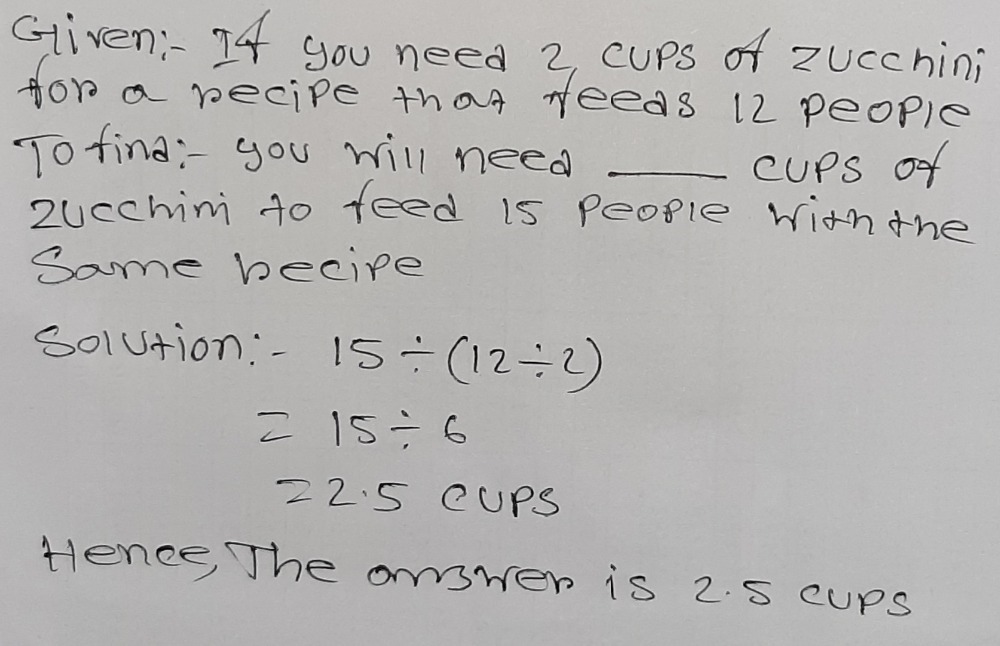 Given:- If you need 2 cups of zucchini
for a recipe that feeds 12 people
To find:- you will need ____ cups of
zucchini to feed 15 people with the
Same recipe
Solution:- 15 ÷ (12 ÷ 2)
= 15 ÷ 6
= 2.5 cups
Hence, The answer is 2.5 cups